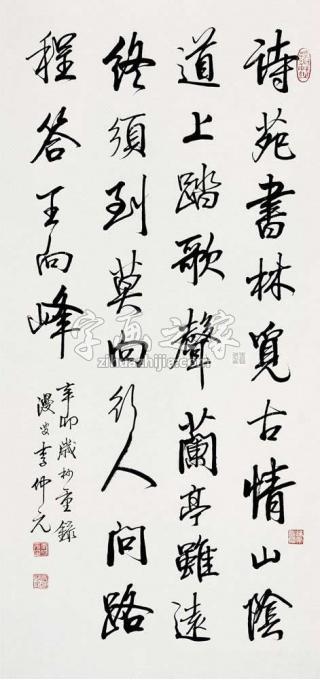 詩苑書林覓古情山陰
道上踏歌聲蘭亭雖遠
終須到莫向行人問路
程答王向峰
辛卯歲杪重錄
漫叟李仲元
字画之家
zihuazhijia.com